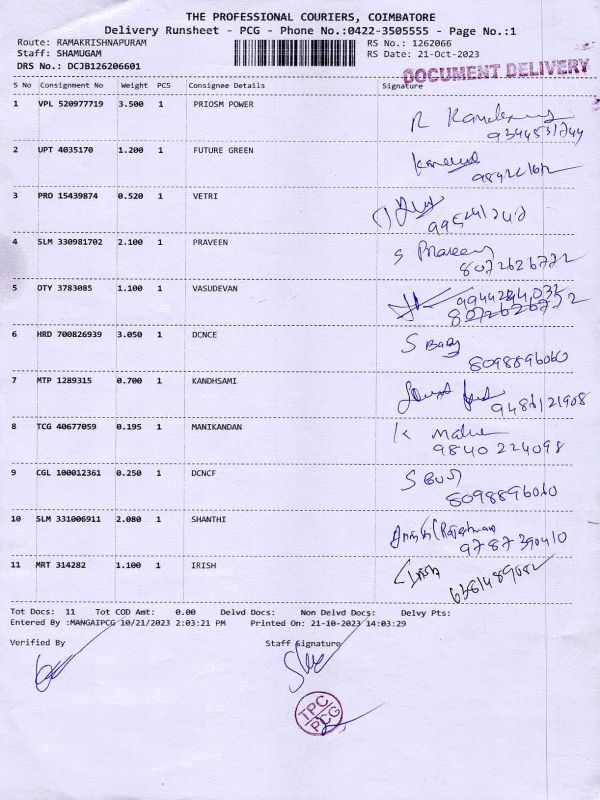 THE PROFESSIONAL COURIERS, COIMBATORE
Delivery Runsheet - PCG - Phone No.:0422-3505555 - Page No.:1
Route: RAMAKRISHNAPURAM RS No.: 1262066
Staff: SHAMUGAM RS Date: 21-Oct-2023
DRS No.: DCJB126206601
DOCUMENT DELIVERY
S No Consignment No Weight PCS Consignee Details Signature
1 VPL 520977719 3.500 1 PRIOSM POWER R
2 UPT 4035170 1.200 1 FUTURE GREEN
3 PRO 15439874 0.520 1 VETRI
4 SLM 330981702 2.100 1 PRAVEEN S Praveen
8072626772
5 OTY 3783085 1.100 1 VASUDEVAN
6 HRD 700826939 3.050 1 DCNCE S Baby
8098896060
7 MTP 1289315 0.700 1 KANDHSAMI
9486121908
8 TCG 40677059 0.195 1 MANIKANDAN
9840224098
9 CGL 100012361 0.250 1 DCNCF S
8098896060
10 SLM 331006911 2.080 1 SHANTHI
9787390410
11 MRT 314282 1.100 1 IRISH Irish
Tot Docs: 11 Tot COD Amt: 0.00 Delvd Docs: Non Delvd Docs: Delvy Pts:
Entered By :MANGAIPCG 10/21/2023 2:03:21 PM Printed On: 21-10-2023 14:03:29
Verified By Staff Signature
TPC
PCG